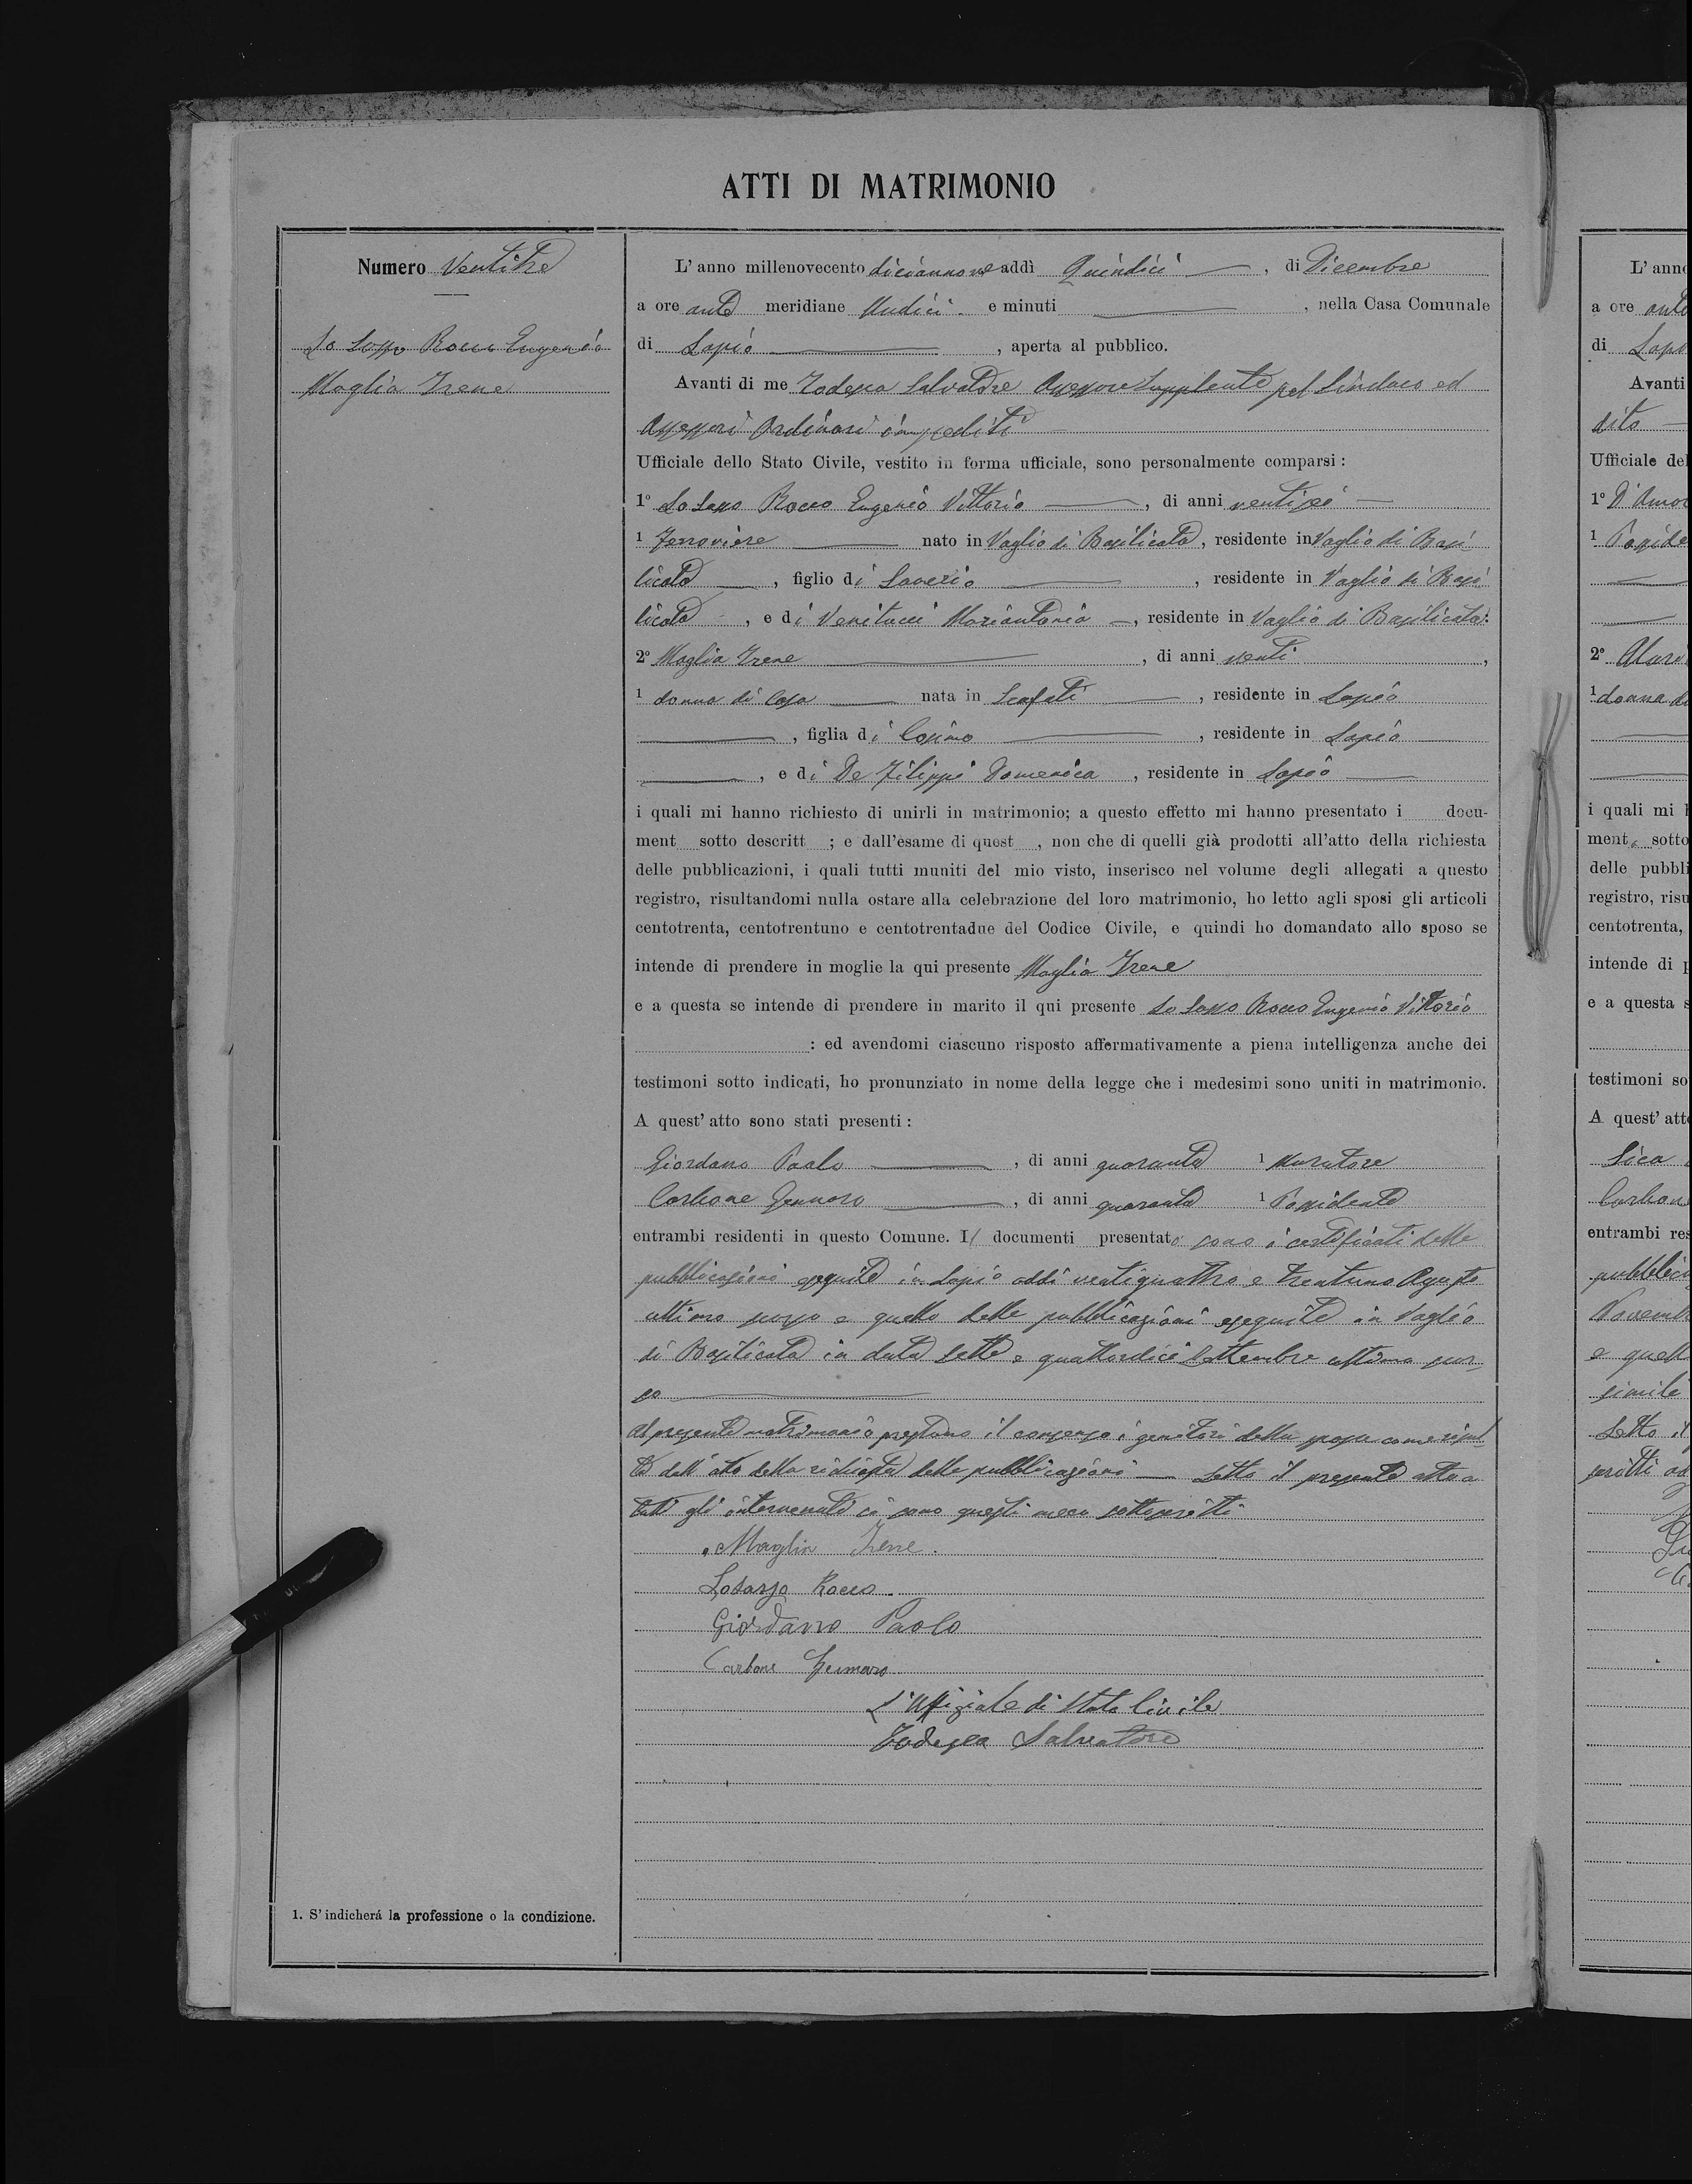 ATTI DI MATRIMONIO
Numero Ventitre
Lo Sasso Rocco Eugenio
Maglia Irene
L' anno millenovecento diciannove addì Quindici, di Dicembre
a ore ante meridiane Undici e minuti, nella Casa Comunale
di Lapio, aperta al pubblico.
Avanti di me Todesca Salvatore Assessore Supplente pel Sindaco ed
Assessori Ordinari impediti
Ufficiale dello Stato Civile, vestito in forma ufficiale, sono personalmente comparsi:
1º Lo Sasso Rocco Eugenio Vittorio, di anni ventisei
1 Ferroviere nato in Vaglio di Basilicata, residente in Vaglio di Basi
licata, figlio di Saverio, residente in Vaglio di Basi
licata, e di Venitucci Mariantonia, residente in Vaglio di Basilicata:
2º Maglia Irene, di anni venti,
1 donna di Casa nata in Scafati, residente in Lapio
, figlia di Cosimo, residente in Lapio
, e di De Filippi Domenica, residente in Lapio
i quali mi hanno richiesto di unirli in matrimonio; a questo effetto mi hanno presentato i docu-
ment sotto descritt ; e dall'esame di quest , non che di quelli già prodotti all'atto della richiesta
delle pubblicazioni, i quali tutti muniti del mio visto, inserisco nel volume degli allegati a questo
registro, risultandomi nulla ostare alla celebrazione del loro matrimonio, ho letto agli sposi gli articoli
centotrenta, centotrentuno e centotrentadue del Codice Civile, e quindi ho domandato allo sposo se
intende di prendere in moglie la qui presente Maglia Irene
e a questa se intende di prendere in marito il qui presente Lo Sasso Rocco Eugenio Vittorio
: ed avendomi ciascuno risposto affermativamente a piena intelligenza anche dei
testimoni sotto indicati, ho pronunziato in nome della legge che i medesimi sono uniti in matrimonio.
A quest' atto sono stati presenti:
Giordano Paolo, di anni quaranta 1 Muratore
Carbone Gennaro, di anni quaranta 1 Possidente
entrambi residenti in questo Comune. I documenti presentati sono i certificati delle
pubblicazioni eseguite in Lapio addì ventiquattro e trentuno Agosto
ultimo scorso e quello delle pubblicazioni eseguite in Vaglio
di Basilicata in data sette e quattordici Settembre ultimo scor
so
Al presente matrimonio prestano il consenso i genitori della sposa come risul
ta dall'atto della richiesta delle pubblicazioni Letto il presente atto a
tutti gli intervenuti si sono questi meco sottoscritti
Maglia Irene.
Losasso Rocco
Giordano Paolo
Carbone Gennaro
L'Uffiziale di Stato Civile
Todesca Salvatore
1. S' indicherá la professione o la condizione.
L' anno
a ore ante
di Lapi
Avanti
dito
Ufficiale del
1º D'Amor
1 Posside
2º
1 donna di
i quali mi
ment sotto
delle pubbli
registro, risu
centotrenta,
intende di p
e a questa s
testimoni so
A quest' atto
Sica
Carbon
entrambi res
pubblica
Novemb
e quell
simile
Letto il
scritti